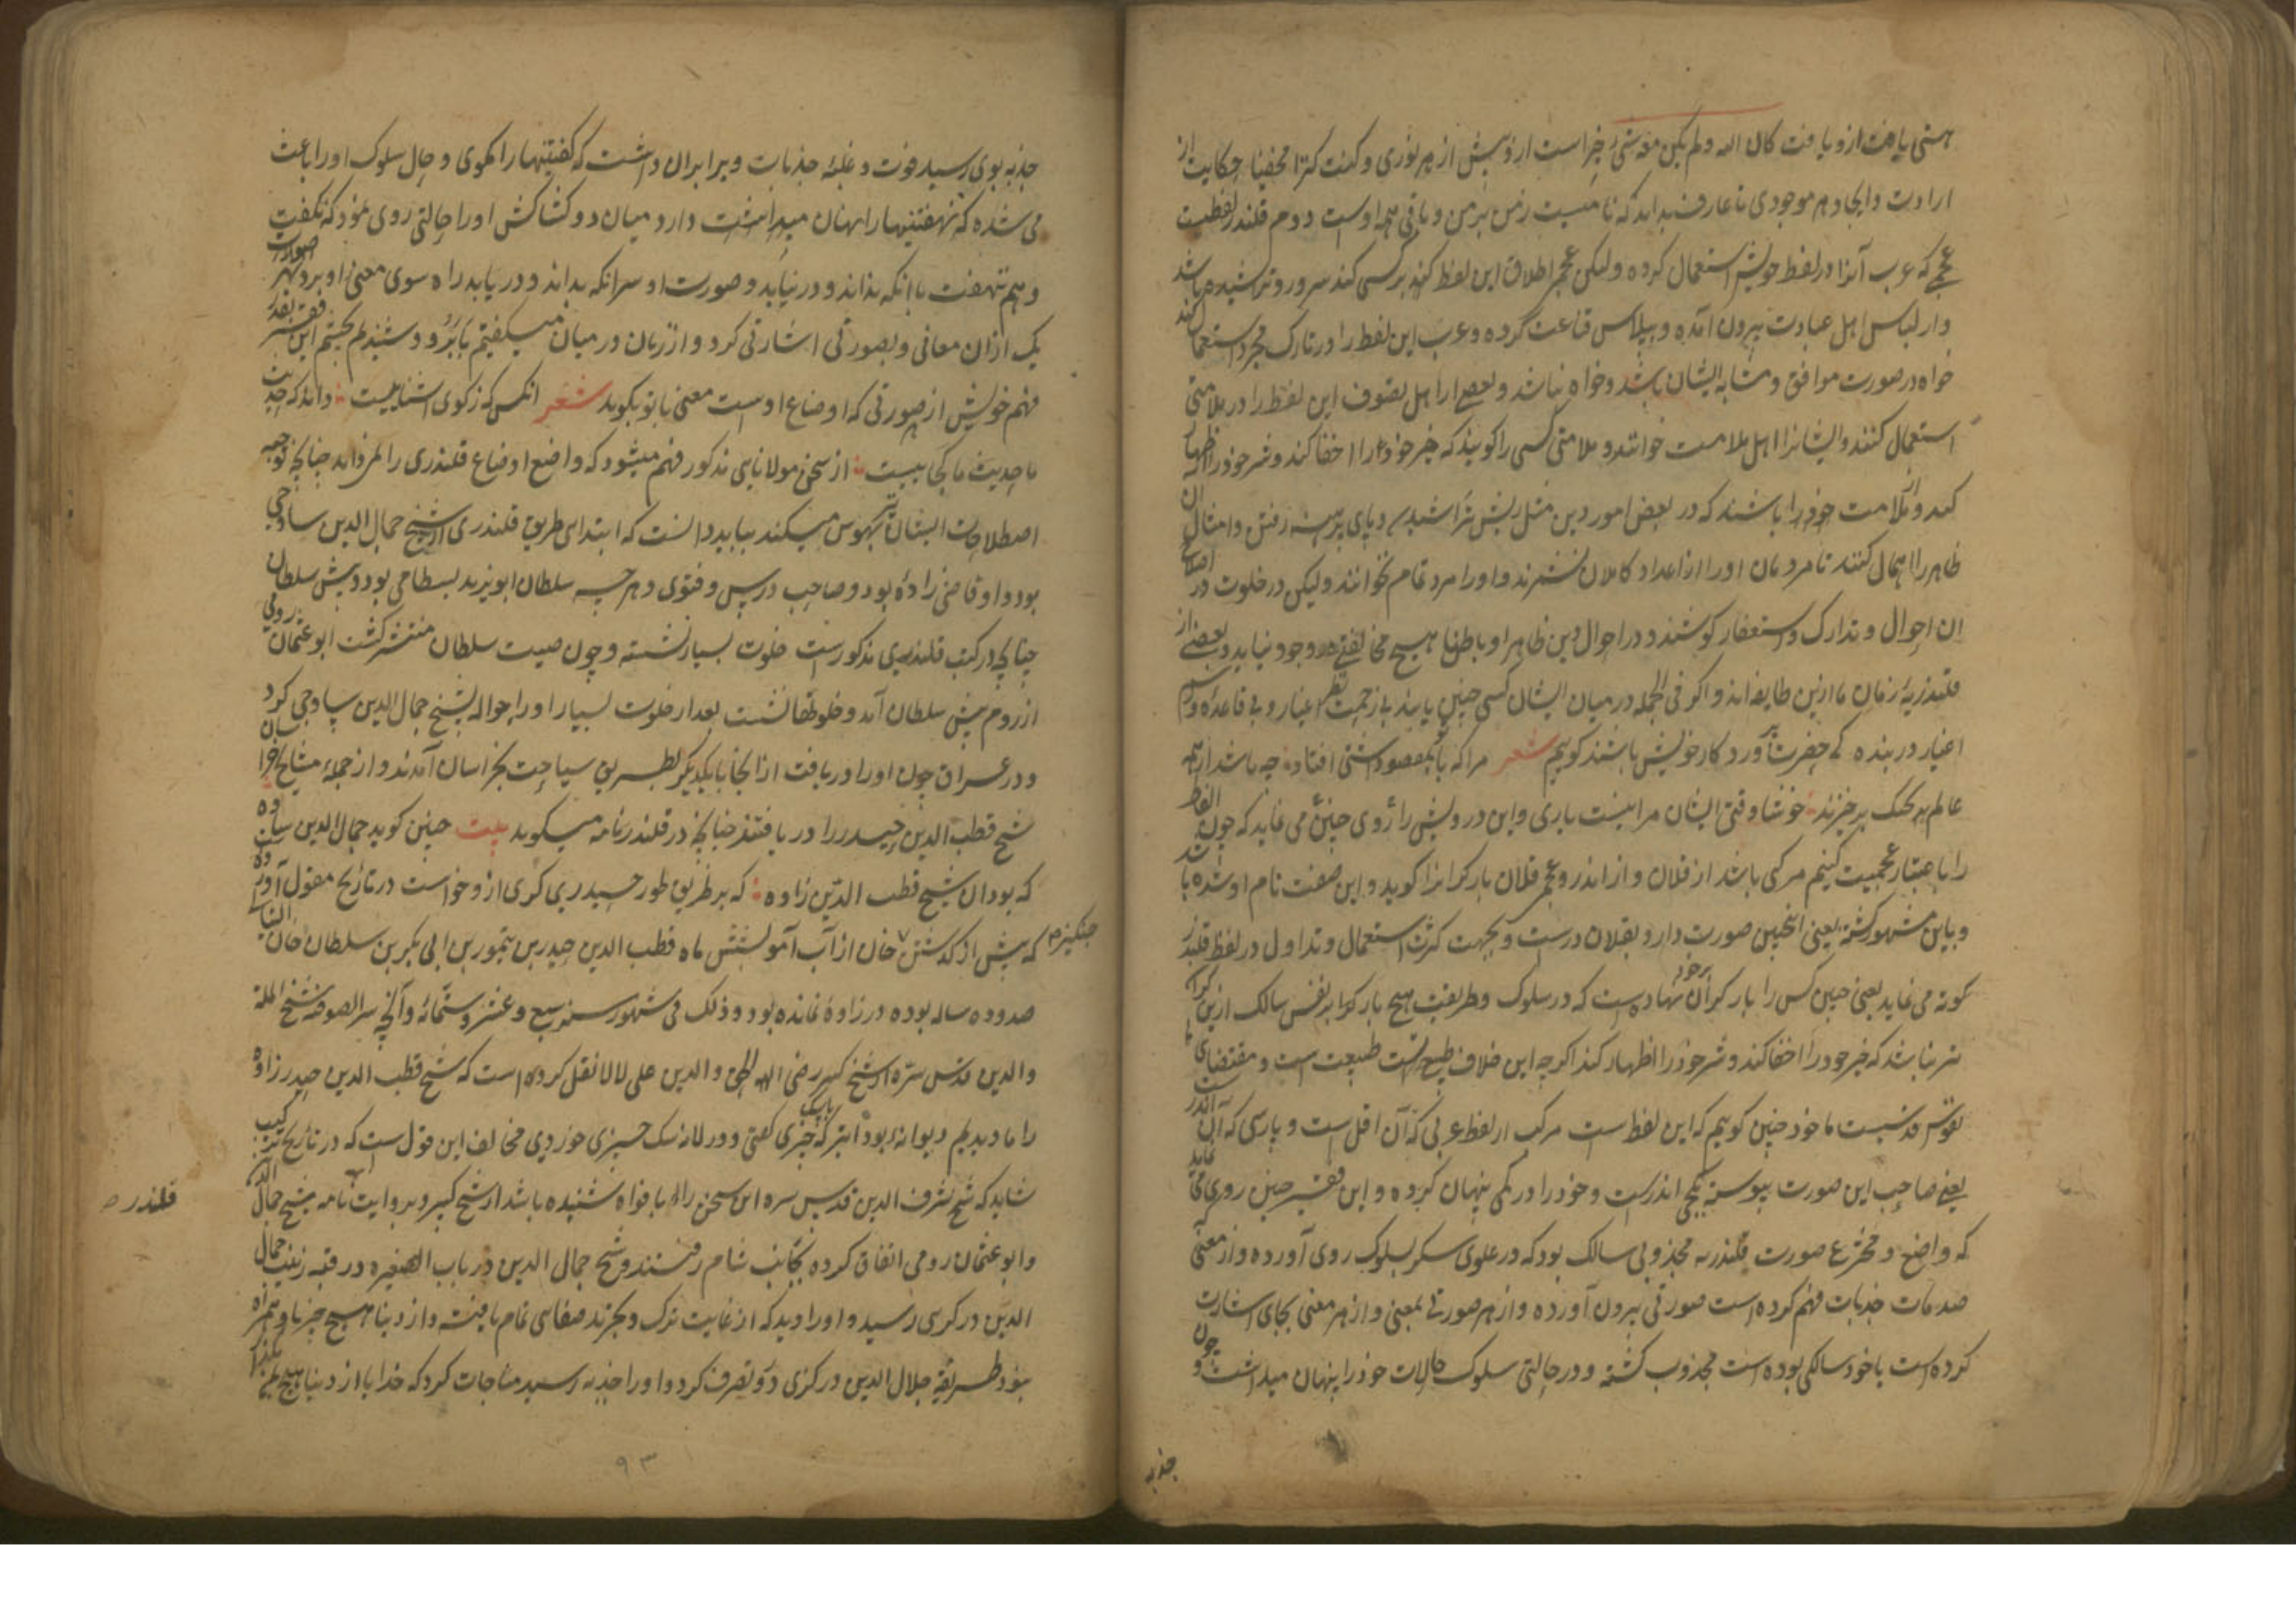 هستی یافت ازو یافت کان الله ولم یکن معه شیء خبر است ازو پیش از هر نوری و کنت کنزا مخفیا حکایت از
ارادت و ایجاد هر موجودی تا عارف بداند که نامیست ز من بر من و باقی همه اوست دوم قلندر لفظیست
عجمی که عرب آنرا در لفظ خویش استعمال کرده ولیکن عجم اطلاق این لفظ کنند بر کسی کند سر و رو تراشیده باشد
و از لباس اهل عبادت بیرون آمده و بپلاس قناعت کرده و عرب این لفظ را در تارک مجرد استعمال کند
خواه در صورت موافق و مشابه ایشان باشد و خواه نباشد و بعضی از اهل تصوف این لفظ را در ملامتی
استعمال کنند و ایشانرا اهل ملامت خوانند و ملامتی کسی را گویند که خیر خود را اخفا کند و شر خود را اظهار
کند و ملامت خود را باشند که در بعض امور دین مثل ریش تراشیدن و پای برهنه رفتن و امثال آن
ظاهر را اهمال کنند تا مردمان او را از اعداد کاملان نشمرند و او را مرد تمام نخوانند ولیکن در خلوت در اصلاح
ان احوال و تدارک و استغفار کوشند و در احوال دین ظاهرا و باطنا هیچ مخالفتی در وجود نیاید و بعضی از
قلندریهٔ زمان ما ازین طایفه‌اند و اگر فی الجمله در میان ایشان کسی چنین یابند بی زحمت نظر اغیار و بی قاعده و رسم
اغیار در بنده کی حضرت آورد کار خویش باشند گوییم شعر مرا که با تو مقصود آشتی افتاد چه باشد ار همه
عالم بجنگ برخیزند خوشا وقتی ایشان مرا نیست باری و این درویش را روی چنین می نماید که چون الفاظ
را باعتبار عجمیت کنیم مرکب باشد از قلان و از اندر و عجم قلان بار گرانرا گوید و این صفت نام او شده باشد
و باین مشهور گشته یعنی انچنین صورت دارد بقلان درست و بجهت کثرت استعمال و تداول در لفظ قلندر
کوته می نماید یعنی چنین کس را بار گران بر خود نهاده است که در سلوک و طریقت هیچ بار گران بر نفس سالک ازین گرانتر
نباشد که خیر خود را اخفا کند و شر خود را اظهار کند اگر چه این خلاف طبیعت است و مقتضای
نفوس قدسیست ما خود چنین گوییم که این لفظ است مرکب از لفظ عربی که آن اقل است و پارسی که آن اندر است
یعنی صاحب این صورت پیوسته بکمی اندرست و خود را در کمی پنهان کرده و این فقیر چنین روی می نماید
که واضع و مخترع صورت قلندریه مجذوبی سالک بود که در علوی سکر بسلوک روی آورده و از معنی
صدمات جذبات فهم کرده است صورتی بیرون آورده و از هر صورتی بمعنی و از هر معنی بجای اشارت
کرده است یا خود سالکی بوده است مجذوب گشته و در حالتی سلوک حالات خود را پنهان میداشت و چون
جذبه
جذبه بوی رسید قوت و غلبهٔ جذبات ویرا بران داشت که گفتنیها را نگوی و حال سلوک او را باعث
می شده که نهفتنیها را نهان میداشت دارد میان دو کشاکش او را حالتی روی نمود که نگفت
و هم نهفت با انکه نداند و در نیابد و صورت او سرانکه بداند و دریابد راه سوی معنی او برد و هر صورت
یک از ان معانی و بصورتی اشارتی کرد و از زبان در میان میگفتیم تا برو و شنیدیم بچشم این فقیر بقدر
فهم خویش از صورتی که اوضاع اوست معنی با تو بگوید شعر انکس که ز کوی آشناییست داند که حدیث
ما حدیث ما کجاییست از سخن مولانایی مذکور فهم میشود که واضع اوضاع قلندری را می داند چنانچه توجیه
اصطلاحات ایشان میکند بباید دانست که ابتدای طریق قلندری از شیخ جمال الدین ساوجی
بود و او قاضی زاده بود و صاحب درس و فتوی و هر چه سلطان ابو یزید بسطامی بود و پیش سلطان
چنانچه در کتب قلندری مذکورست خلوت بسیار نشسته و چون صیت سلطان منتشر گشت ابو عثمان رومی
از روم پیش سلطان آمد و خلوتها نشست بعد از خلوت بسیار او را حواله بشیخ جمال الدین ساوجی کرد
و در عراق چون او را دریافت از انجا با یکدیگر بطریق سیاحت بخراسان آمدند و از جمله مشایخ خراسان
شیخ قطب الدین حیدر را دریافتند چنانچه در قلندرنامه میگوید بیت چنین گوید جمال الدین ساوه
که بودان شیخ قطب الدین زاوه که بر طریق طور حیدری کری ازو خواست در تاریخ منقول آورده
که پیش از گذشتن خان از آب آمو بشش ماه قطب الدین حیدر بن تیمور بن ابی بکر بن سلطان خان
چنگیز
صد و ده ساله بوده در زاوه نمانده بود و ذلک فی شهور سنه سبع و عشر و ستمائه و آنچه سر الصوفیه شیخ المله
والدین قدس سره از شیخ کبیر رضی الدین علی لالا نقل کرده است که شیخ قطب الدین حیدر زاوه
را ما دیدیم دیوانه بود ابتر که چیزی گفتی و در لانه سک چیزی خوردی مخالف این قول است که در تاریخ
شاید که شیخ شرف الدین قدس سره این سخن را بافواه شنیده باشد از شیخ کبیر و بروایت نامه شیخ جمال الدین
قلندر
و ابو عثمان رومی اتفاق کرده بجانب شام رفتند و شیخ جمال الدین در باب الصغیر در قبه زینب جمال
الدین درکزی رسید و او را دید که از غایت ترک و تجرید صفای تمام یافته و از دنیا هیچ چیز با او همراه
نبود طریقه جلال الدین درکزی درو تصرف کرد و او را جذبه رسید مناجات کرد که خدایا از دنیا هیچ
۹۳